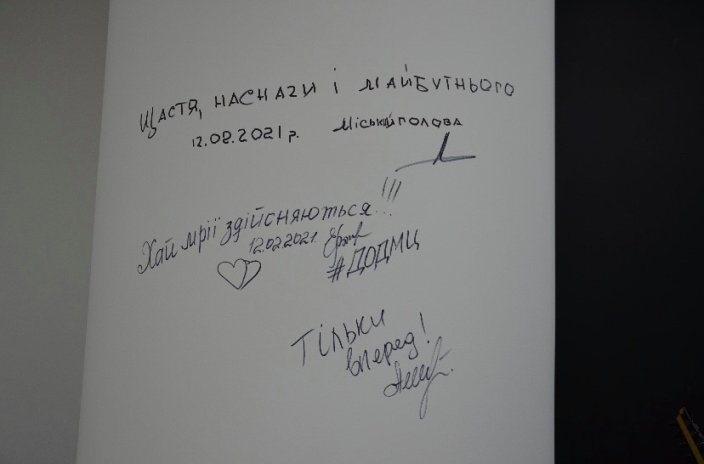 Щастя, наснаги і майбутнього
12.02.2021 р. Міський голова
Хай мрії здійсняються...!!!
12.02.2021
#ДОДМЦ
Тільки
вперед!